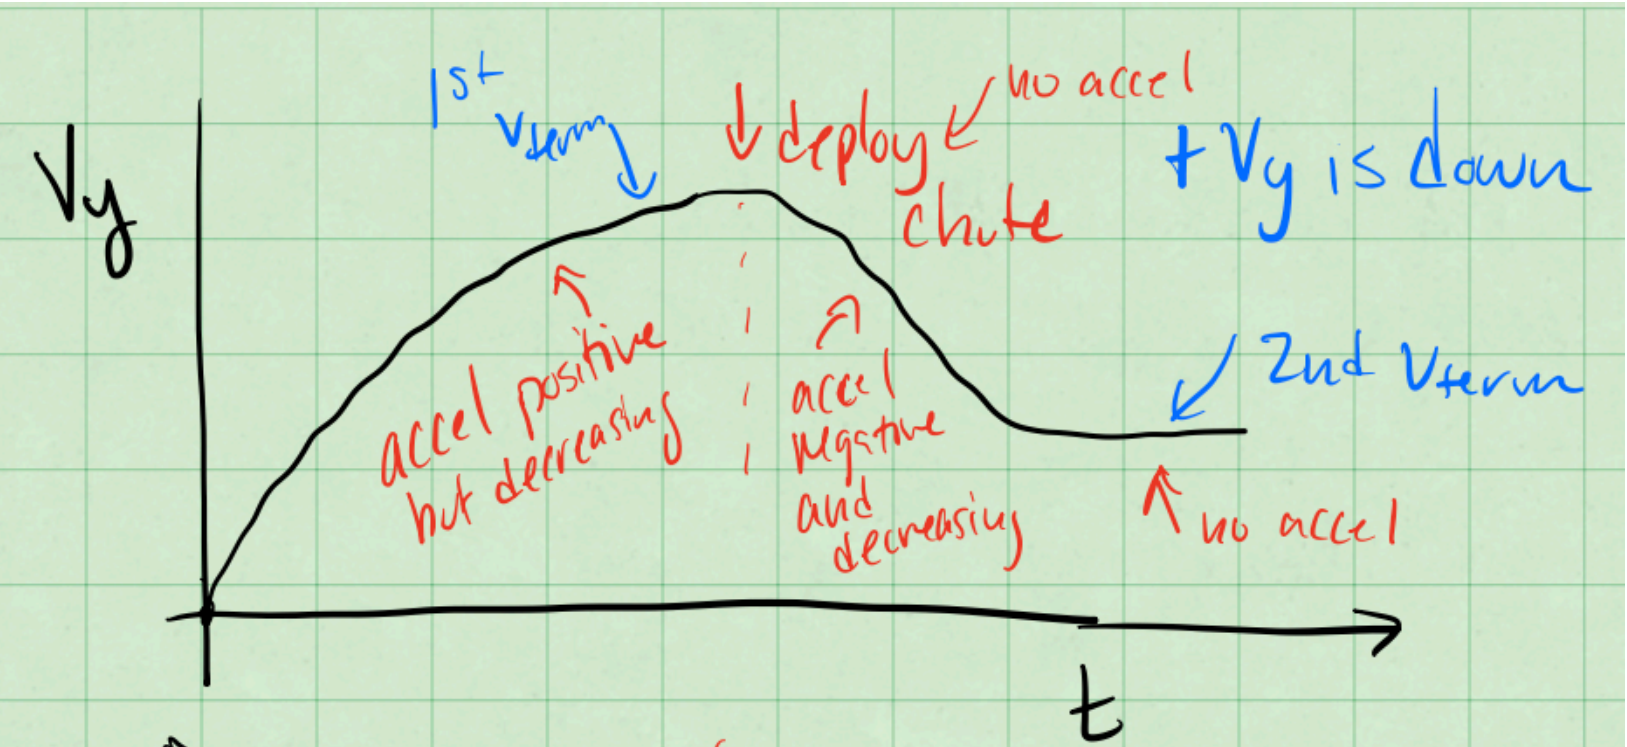 Vy
1st
Vterm
deploy
chute
no accel
+Vy is down
accel positive
but decreasing
accel
negative
and
decreasing
2nd Vterm
no accel
t